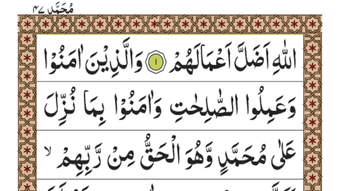 مُحَمَّد ٤٧
اللّٰهِ اَضَلَّ اَعْمَالَهُمْ ۝١ وَالَّذِيْنَ اٰمَنُوْا
وَعَمِلُوا الصّٰلِحٰتِ وَاٰمَنُوْا بِمَا نُزِّلَ
عَلٰى مُحَمَّدٍ وَّهُوَ الْحَقُّ مِنْ رَّبِّهِمْ ۙ